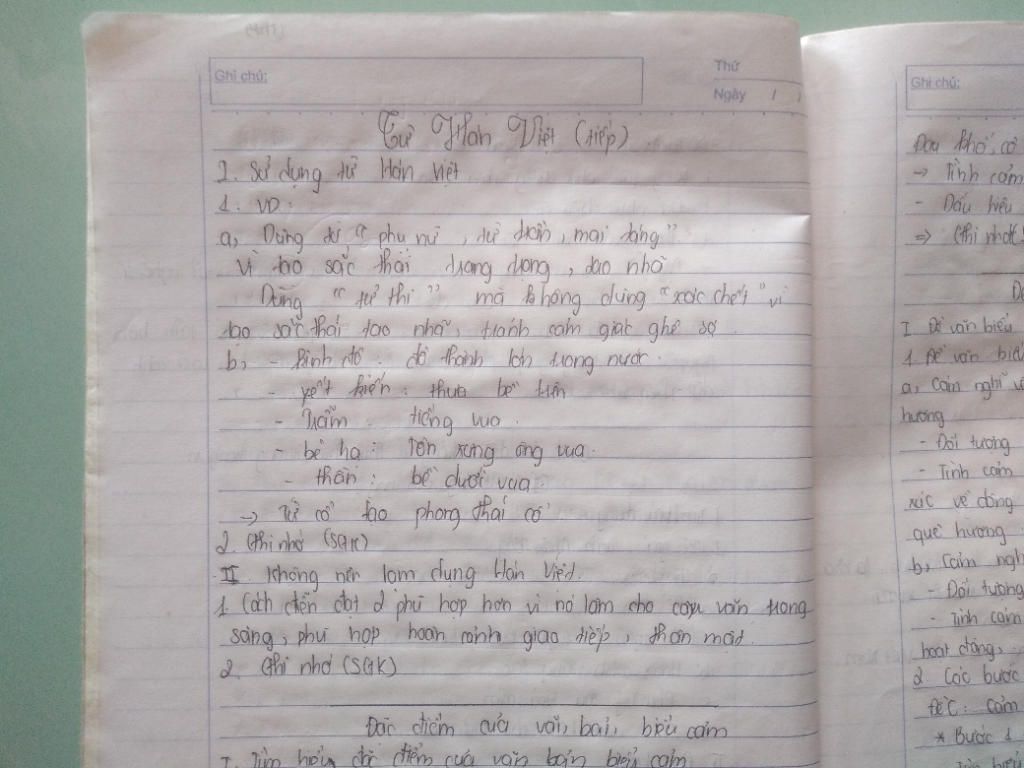 Ghi chú:
Thứ
Ngày / /
Từ Hán Việt (tiếp)
I. Sử dụng từ Hán Việt
1. VD:
a, Dùng từ “phụ nữ, từ trần, mai táng”
vì tạo sắc thái trang trọng, tao nhã
Dùng “tử thi” mà không dùng “xác chết” vì
tạo sắc thái tao nhã, tránh cảm giác ghê sợ
b, - kinh đô: đô thành lớn trong nước.
- yết kiến: thưa bề trên
- Trẫm: tiếng vua.
- bệ hạ: Tôn xưng ông vua.
- thần: bề dưới vua.
-> Từ cổ tạo phong thái cổ
2. Ghi nhớ (SGK)
II. Không nên lạm dụng Hán Việt.
1 Cách diễn đạt 2 phù hợp hơn vì nó làm cho câu văn trong
sáng, phù hợp hoàn cảnh giao tiếp, thân mật.
2. Ghi nhớ (SGK)
Đặc điểm của văn bản biểu cảm
I. Tìm hiểu đặc điểm của văn bản biểu cảm
Ghi chú:
Đau khổ, cô
-> Tình cảm
- Dấu hiệu
=> Ghi nhớ
I Đề văn biểu
1 Đề văn biểu
a, Cảm nghĩ về
hương
- Đối tượng
- Tình cảm
xúc về dòng
quê hương
b, Cảm nghĩ
- Đối tượng
- Tình cảm
hoạt động,
2 Các bước
ĐỀ: Cảm
* Bước 1
Tìm hiểu